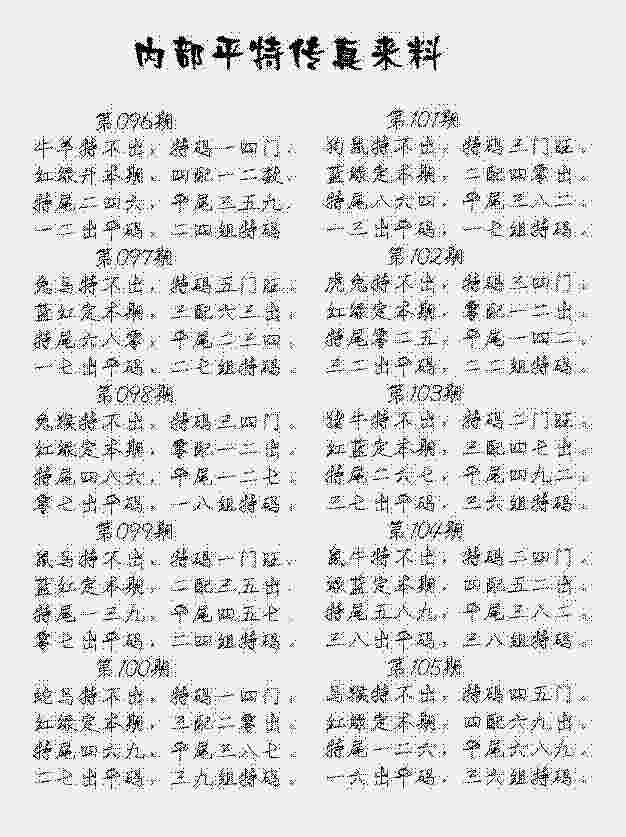 内部平特传真来料
第096期
牛羊特不出，特码一四门。
红绿开本期，四配一二数。
特尾二四六，平尾三五九。
一二出平码，二四组特码
第097期
兔马特不出，特码五门旺。
蓝红定本期，三配六三出。
特尾六八零，平尾二三四。
一七出平码，二七组特码。
第098期
兔猴特不出，特码三四门。
红绿定本期，零配一二出。
特尾四八六，平尾一二七。
零七出平码，一八组特码。
第099期
鼠马特不出，特码一门旺。
蓝红定本期，二配三五出。
特尾一三九，平尾四五七。
零七出平码，二四组特码。
第100期
蛇马特不出，特码一四门。
红绿定本期，三配二零出。
特尾四六九，平尾三八七。
二七出平码，三九组特码。
第101期
狗鼠特不出，特码三门旺。
蓝绿定本期，二配四零出。
特尾八六四，平尾三八二。
一三出平码，一七组特码。
第102期
虎兔特不出，特码三四门。
红绿定本期，零配一二出。
特尾零二五，平尾一四二。
三二出平码，二二组特码。
第103期
猪牛特不出，特码二门旺。
红蓝定本期，三配四七出。
特尾二六七，平尾四九二。
三七出平码，三六组特码。
第104期
鼠牛特不出，特码二四门。
绿蓝定本期，四配五二出。
特尾五八九，平尾三八二。
三八出平码，三八组特码。
第105期
马猴特不出，特码四五门。
红绿定本期，四配六九出。
特尾一二六，平尾六八九。
一六出平码，三六组特码。